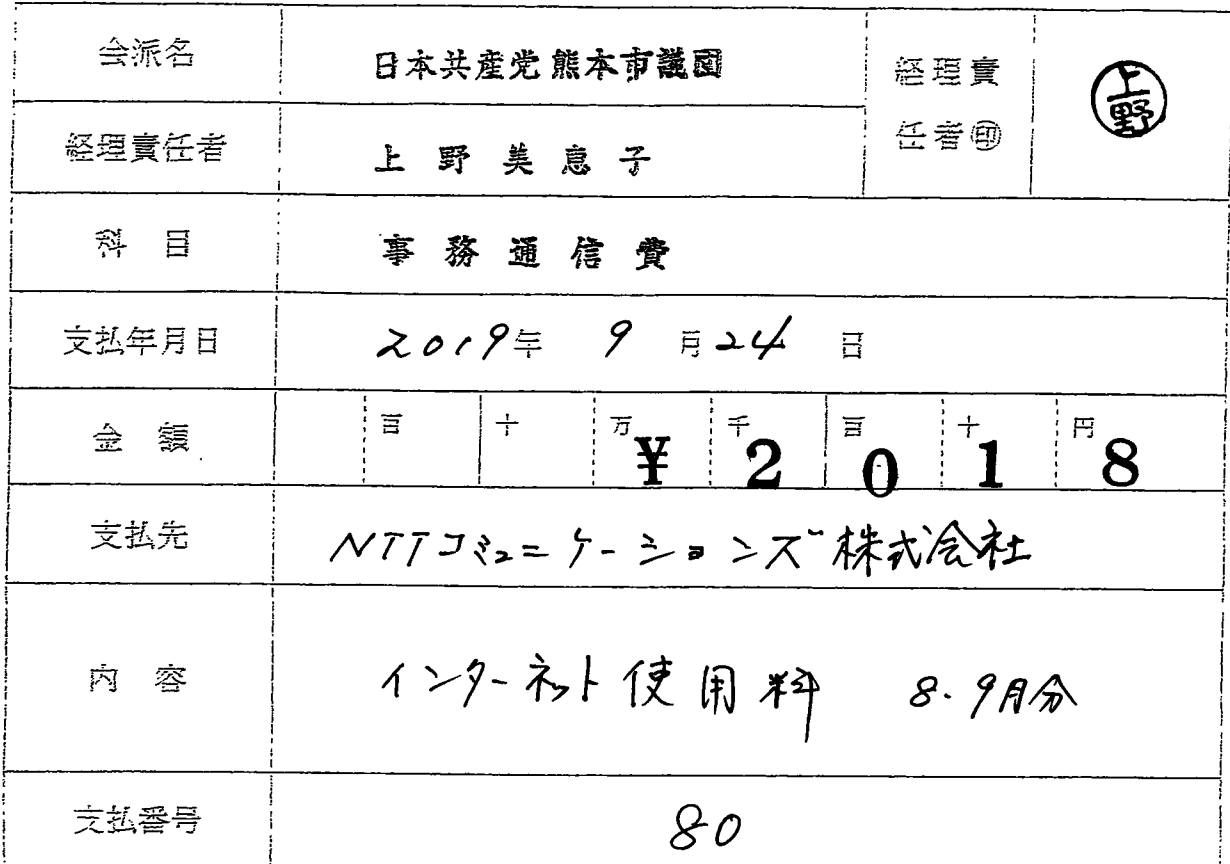 会派名 日本共産党熊本市議団 経理責任者㊞ 上野
経理責任者 上野美恵子
科目 事務通信費
支払年月日 2019年 9月24日
金額 百 十 万 千 百 十 円
¥2018
支払先 NTTコミュニケーションズ株式会社
内容 インターネット使用料 8.9月分
支払番号 80